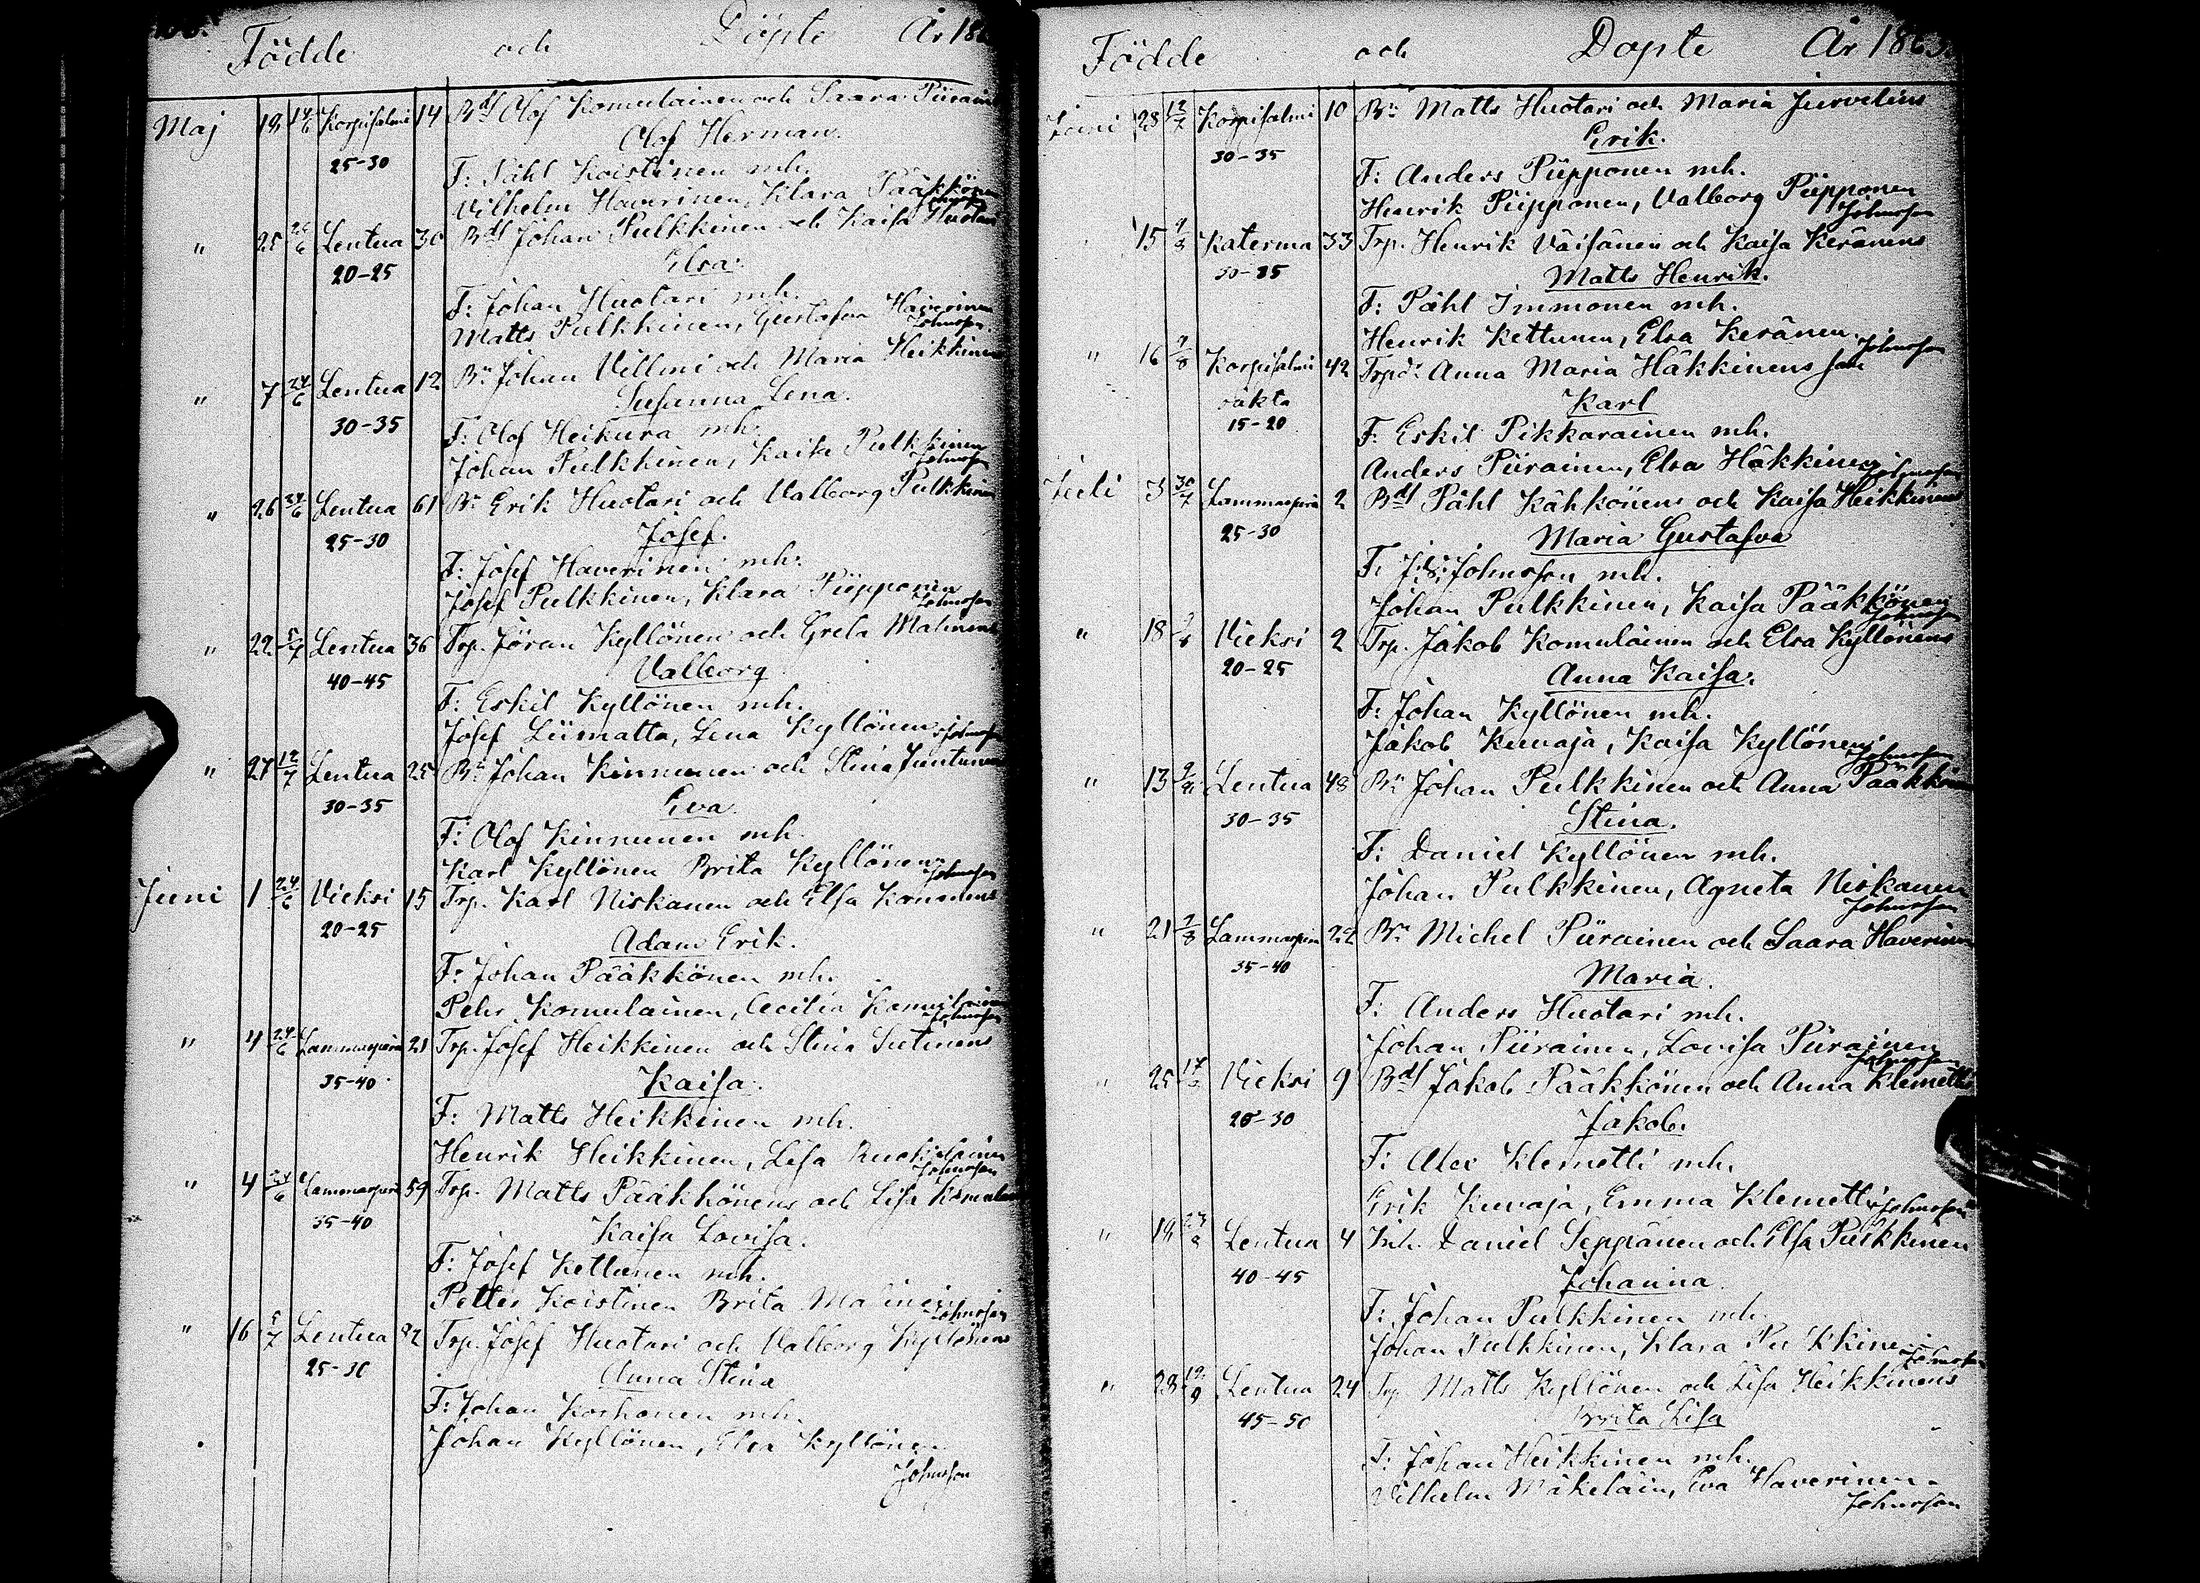 Födde och Döpte År 186
Maj 19 14/6 Korpisalmi 14 Bdf Olof Komulainen och Saara Piirain
Olof Herman.
25-30
F: Påhl Koistinen mh.
Vilhelm Haverinen, Klara Pääkkönen
Johnsson
" 25 24/6 Lentua 30 Bdf Johan Pulkkinen och Kaisa Huotari
Elsa.
20-25
F: Johan Huotari mh.
Matts Pulkkinen, Gustafva Haverinen
Johnsson.
" 7 24/6 Lentua 12 Bn Johan Villmi och Maria Heikkinen
Susanna Lena.
30-35
F: Olof Heikura mh.
Johan Pulkkinen, Kaisa Pulkkinen
Johnsson
" 26 24/6 Lentua 61 Bn Erik Huotari och Valborg Pulkkinen
Josef.
25-30
F: Josef Haverinen mh.
Josef Pulkkinen, Klara Piipponen
Johnsson
" 22 5/7 Lentua 36 Trp. Jöran Kyllönen och Greta Malinens
Valborg
40-45
F: Eskil Kyllönen mh.
Josef Liimatta, Lena Kyllönen Johnsson
" 27 12/7 Lentua 25 Bn Johan Kinnunen och Stina Juntunen
Eva
30-35
F: Olof Kinnunen mh.
Karl Kyllönen Brita Kyllönen
Johnsson
Juni 1 24/6 Vieksi 15 Trp. Karl Niskanen och Elsa Komulains
Adam Erik.
20-25
F: Johan Pääkkönen mh.
Pehr Komulainen, Cecilia Komulainen
Johnsson
" 4 24/6 Lammasperä 21 Trp. Josef Heikkinen och Stina Sutinens
Kaisa.
35-40.
F: Matts Heikkinen mh.
Henrik Heikkinen, Lisa
Johnsson
" 4 24/6 Lammasperä 59 Trp. Matts Pääkkönens och Lisa Komulain
Kaisa Lovisa.
35-40
F: Josef Kettunen mh.
Petter Koistinen Brita Malinen
Johnsson
" 16 5/7 Lentua 82 Trp. Josef Huotari och Valborg Kyllönens
Anna Stina
25-30
F: Johan Korhonen mh.
Johan Kyllönen, Elsa Kyllönen
Johnsson
Födde och Döpte År 1863.
Juni 28 12/7 Korpisalmi 10 Bn Matts Huotari och Maria Jurvelius
Erik.
30-35
F: Anders Piipponen mh.
Henrik Piipponen, Valborg Piipponen
Johnsson
15 Katerma 33 Trp. Henrik Väisänen och Kaisa Keränens
Matts Henrik.
30-35
F: Påhl Immonen mh.
Henrik Kettunen, Elsa Keränen.
Johnsson
" 16 Korpisalmi 42 Trpdr Anna Maria Häkkinens son
oäkta Karl
15-20
F. Eskil Pikkarainen mh.
Anders Piirainen, Elsa Häkkinen
Johnsson
Juli 3 30/7 Lammasperä 2 Bdf Påhl Kähkönens och Kaisa Heikkinens
Maria Gustafva
25-30
F. Johnsson mh.
Johan Pulkkinen, Kaisa Pääkkönen
Johnsson
" 18 Vieksi 2 Trp. Jakob Komulainen och Elsa Kyllönens
Anna Kaisa.
20-25
F: Johan Kyllönen mh.
Jakob Kuvaja, Kaisa Kyllönen
Johnsson
" 13 Lentua 48 Bn Johan Pulkkinen och Anna Pääkkönen
Stina.
30-35
F: Daniel Kyllönen mh.
Johan Pulkkinen, Agneta Niskanen
Johnsson
" 21 2/8 Lammasperä 22 Bn Michel Piirainen och Saara Haverinen
Maria.
35-40
F: Anders Huotari mh.
Johan Piirainen, Lovisa Piirainen
Johnsson
" 25 Vieksi 9 Bdf Jakob Pääkkönen och Anna Klemetti
Jakob.
25-30
F: Alex Klemetti mh.
Erik Kuvaja, Emma Klemetti Johnsson
" 19 23/8 Lentua 4 Inh. Daniel Seppänen och Elsa Pulkkinen
Johanna
40-45
F: Johan Pulkkinen mh.
Johan Pulkkinen, Klara Pulkkinen
Johnsson
" 28 Lentua 24 Trp Matts Kyllönen och Lisa Heikkinens
Brita Lisa
45-50
F: Johan Heikkinen mh.
Vilhelm Mäkeläin, Eva Haverinen.
Johnsson